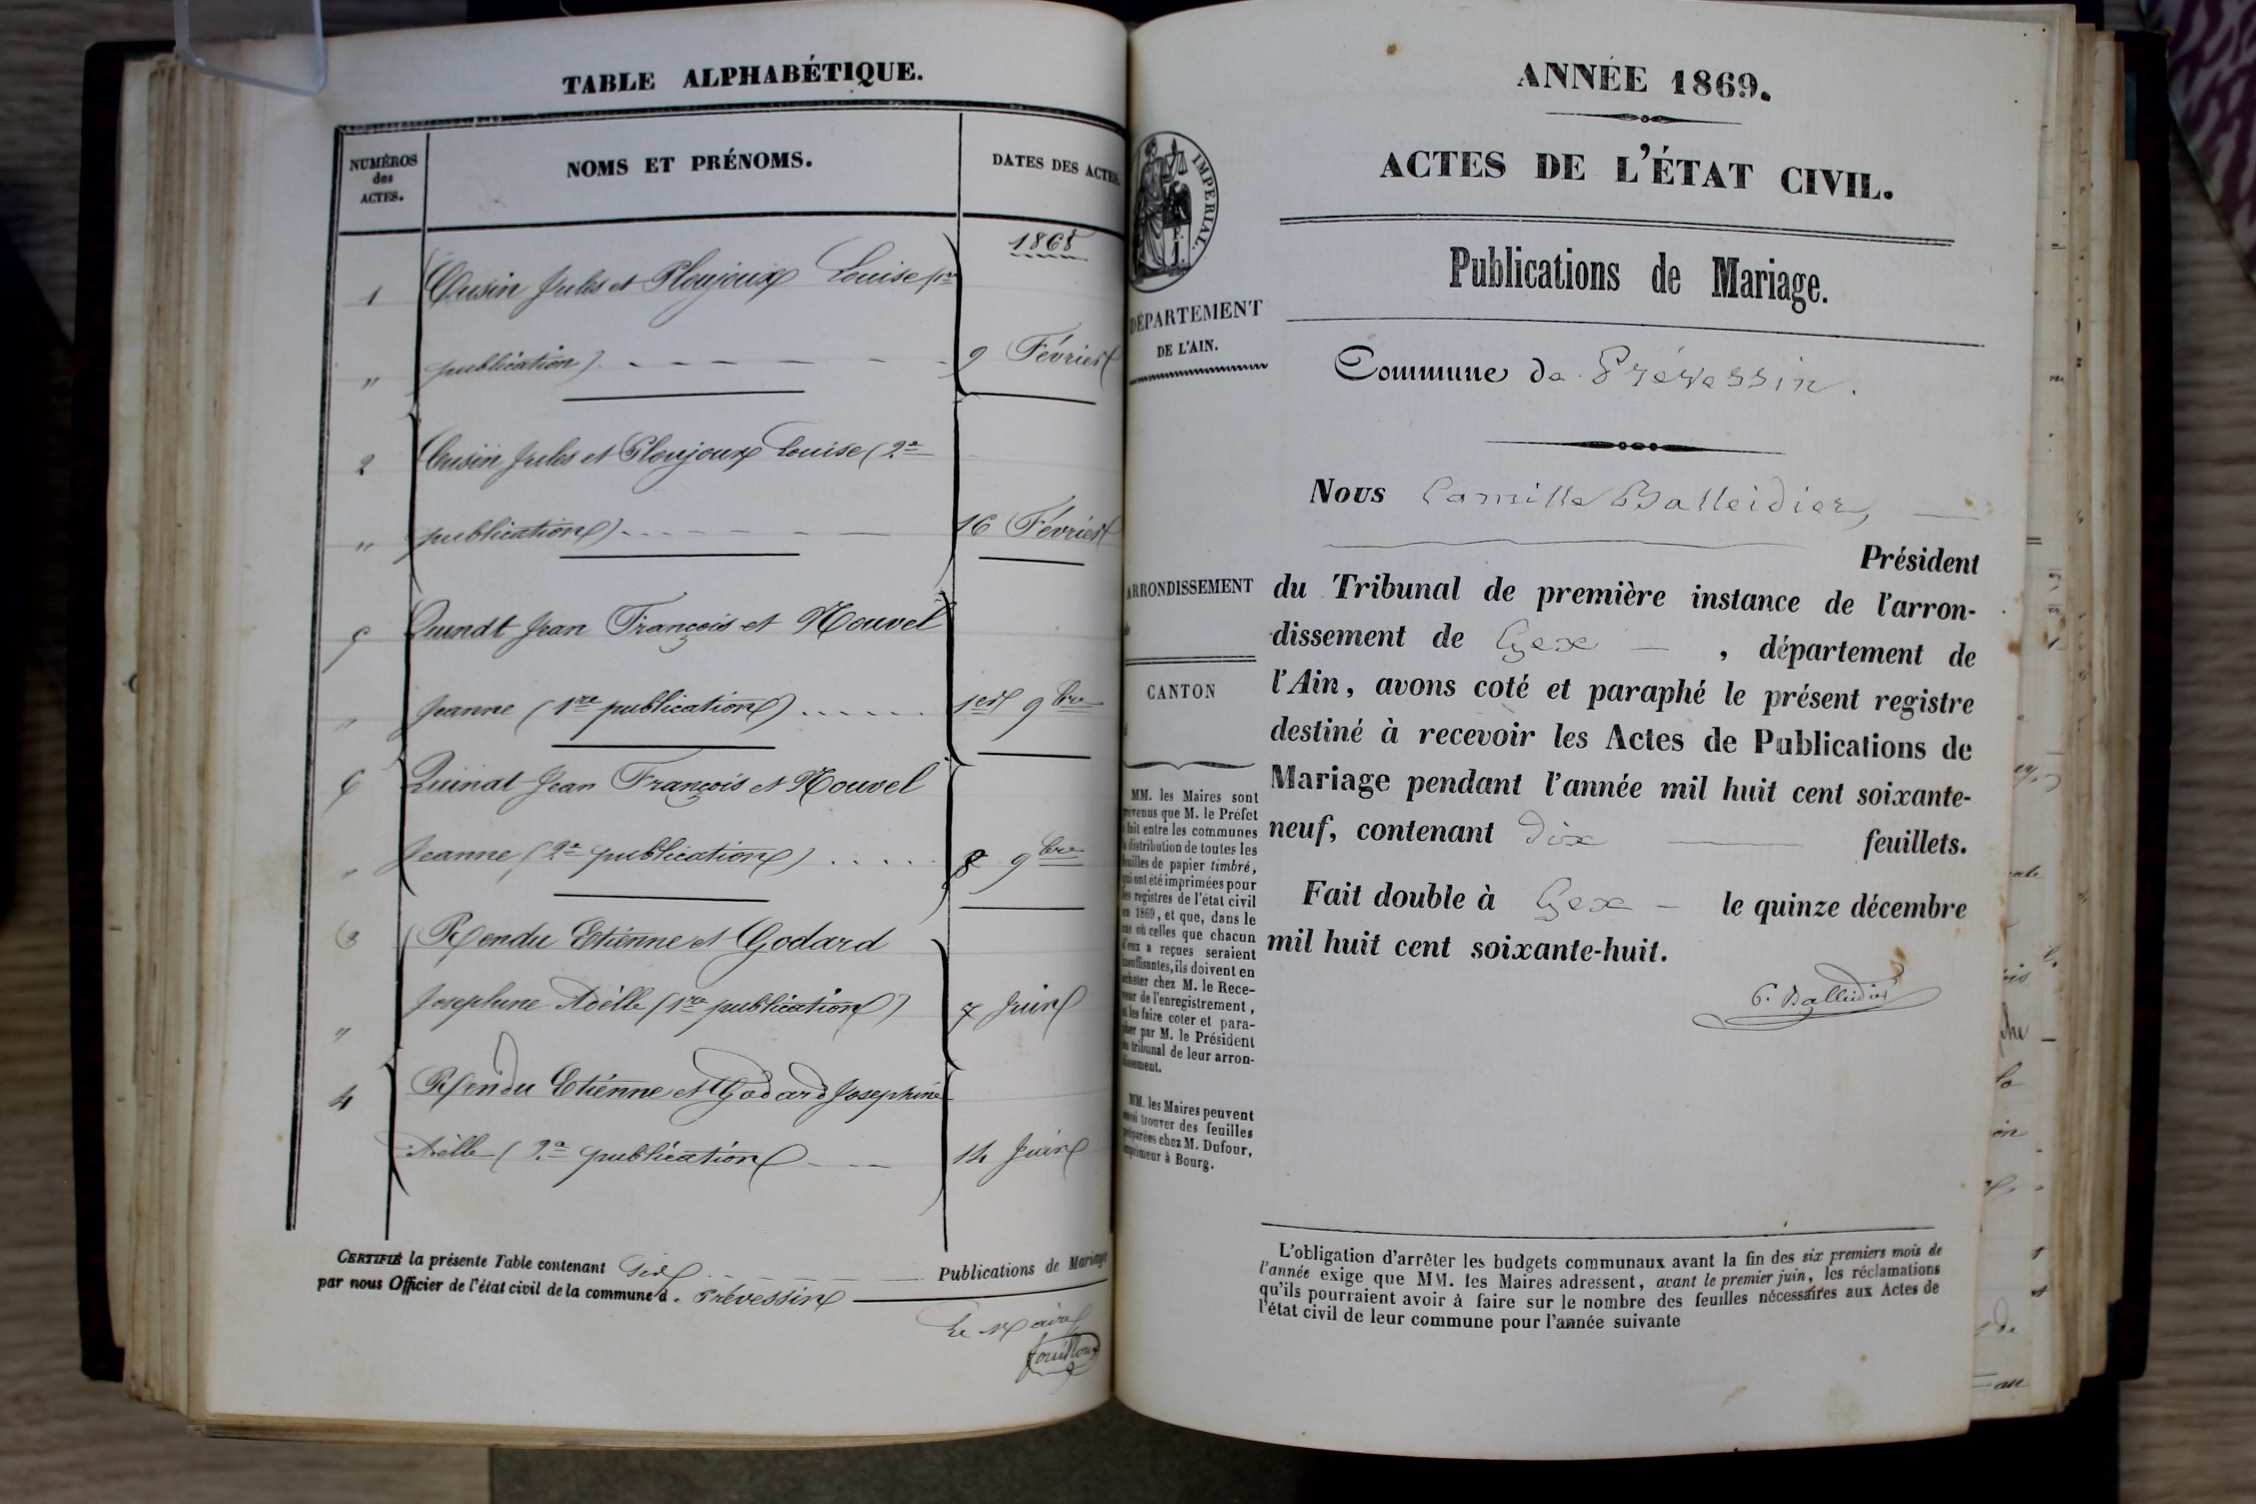 TABLE ALPHABÉTIQUE.
NUMÉROS
des
ACTES.
NOMS ET PRÉNOMS.
DATES DES ACTES.
1868
1 Cusin Jules et Ploujoux Louise (1re
" publication) 9 Février
2 Cusin Jules et Ploujoux Louise (2e
" publication) 16 Février
5 Jean François et Nouvel
" Jeanne (1re publication) 1er 9bre
6 Quinat Jean François et Nouvel
" Jeanne (2e publication) 8 9bre
3 Rendu Etienne et Godard
" Josephine Adèlle (1re publication) 7 Juin
4 Rendu Etienne et Godard Josephine
Adèlle (2e publication 14 Juin
CERTIFIÉ la présente Table contenant Six Publications de Mariage
par nous Officier de l'état civil de la commune d. Prévessin
Le Maire
ANNÉE 1869.
ACTES DE L'ÉTAT CIVIL.
IMPERIAL.
Publications de Mariage.
DÉPARTEMENT
DE L'AIN.
Commune de Prévessin.
Nous Camille Balleidier,
Président
ARRONDISSEMENT
du Tribunal de première instance de l'arron-
dissement de Gex , département de
CANTON
l'Ain, avons coté et paraphé le présent registre
destiné à recevoir les Actes de Publications de
Mariage pendant l'année mil huit cent soixante-
neuf, contenant dix feuillets.
Fait double à Gex le quinze décembre
mil huit cent soixante-huit.
C. Balleidier
MM. les Maires sont
prévenus que M. le Préfet
a fait entre les communes
la distribution de toutes les
feuilles de papier timbré,
qui ont été imprimées pour
les registres de l'état civil
en 1869, et que, dans le
cas où celles que chacun
d'eux a reçues seraient
insuffisantes, ils doivent en
acheter chez M. le Rece-
veur de l'enregistrement,
et les faire coter et para-
pher par M. le Président
du tribunal de leur arron-
dissement.
MM. les Maires peuvent
aussi trouver des feuilles
préparées chez M. Dufour,
imprimeur à Bourg.
L'obligation d'arrêter les budgets communaux avant la fin des six premiers mois de
l'année exige que MM. les Maires adressent, avant le premier juin, les réclamations
qu'ils pourraient avoir à faire sur le nombre des feuilles nécessaires aux Actes de
l'état civil de leur commune pour l'année suivante